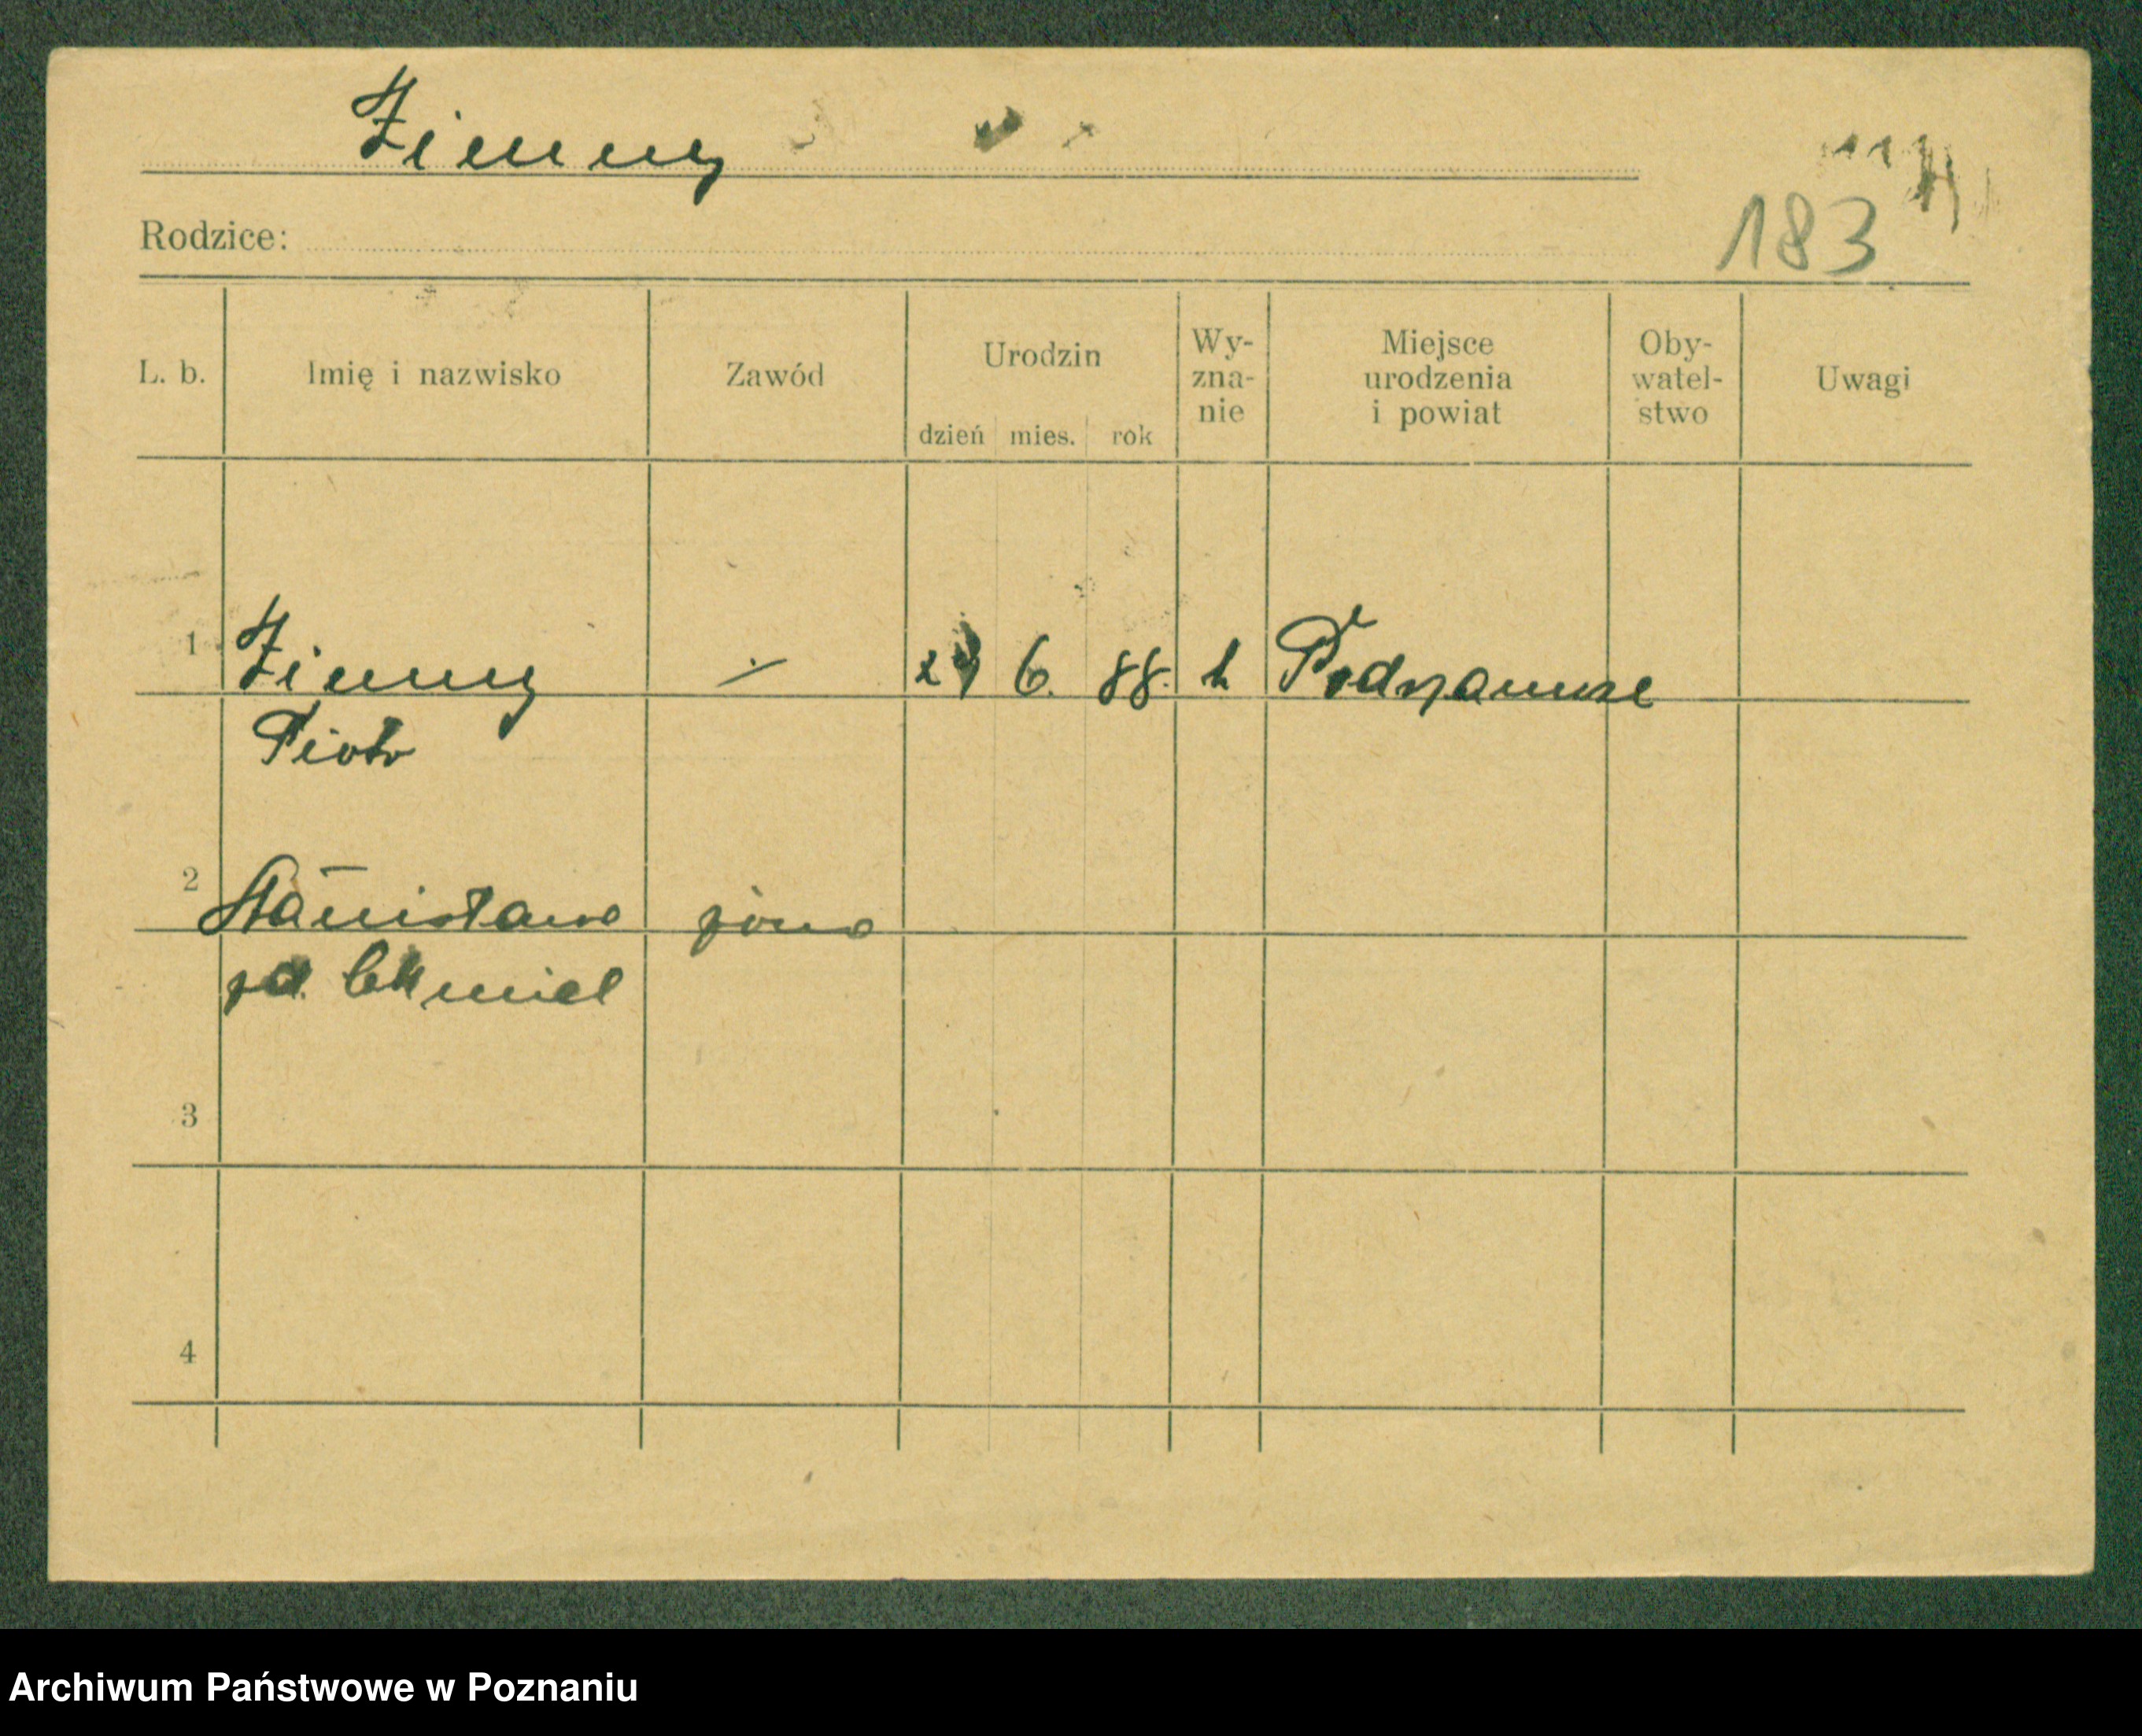 Zimny
183
Rodzice:
L. b. Imię i nazwisko Zawód Urodzin dzień mies. rok Wy-zna-nie Miejsce urodzenia i powiat Oby-watel-stwo Uwagi
1 Zimny 6. 88.
Piotr
2 Stanisława żona
zd. Chmiel
3
4
Archiwum Państwowe w Poznaniu